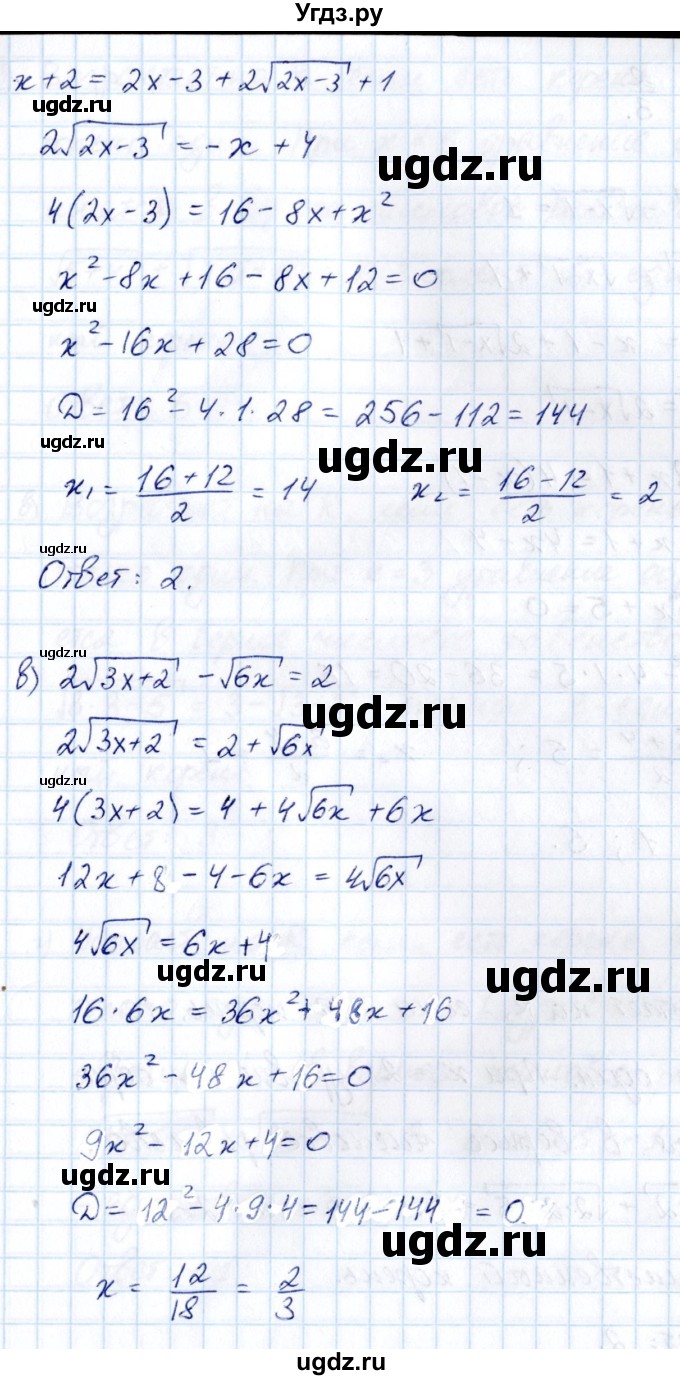 Угдз.ру
x + 2 = 2x − 3 + 2√(2x − 3) + 1
ugdz.ru
2√(2x − 3) = −x + 4
ugdz.ru
4(2x − 3) = 16 − 8x + x²
x² − 8x + 16 − 8x + 12 = 0
ugdz.ru
x² − 16x + 28 = 0
D = 16² − 4 · 1 · 28 = 256 − 112 = 144
ugdz.ru
ugdz.ru
x₁ = (16 + 12)/2 = 14 x₂ = (16 − 12)/2 = 2
ugdz.ru
Ответ: 2.
ugdz.ru
в) 2√(3x + 2) − √(6x) = 2
ugdz.ru
2√(3x + 2) = 2 + √(6x)
ugdz.ru
4(3x + 2) = 4 + 4√(6x) + 6x
12x + 8 − 4 − 6x = 4√(6x)
ugdz.ru
4√(6x) = 6x + 4
ugdz.ru
ugdz.ru
16 · 6x = 36x² + 48x + 16
36x² − 48x + 16 = 0
9x² − 12x + 4 = 0
ugdz.ru
D = 12² − 4 · 9 · 4 = 144 − 144 = 0.
ugdz.ru
x = 12/18 = 2/3
ugdz.ru